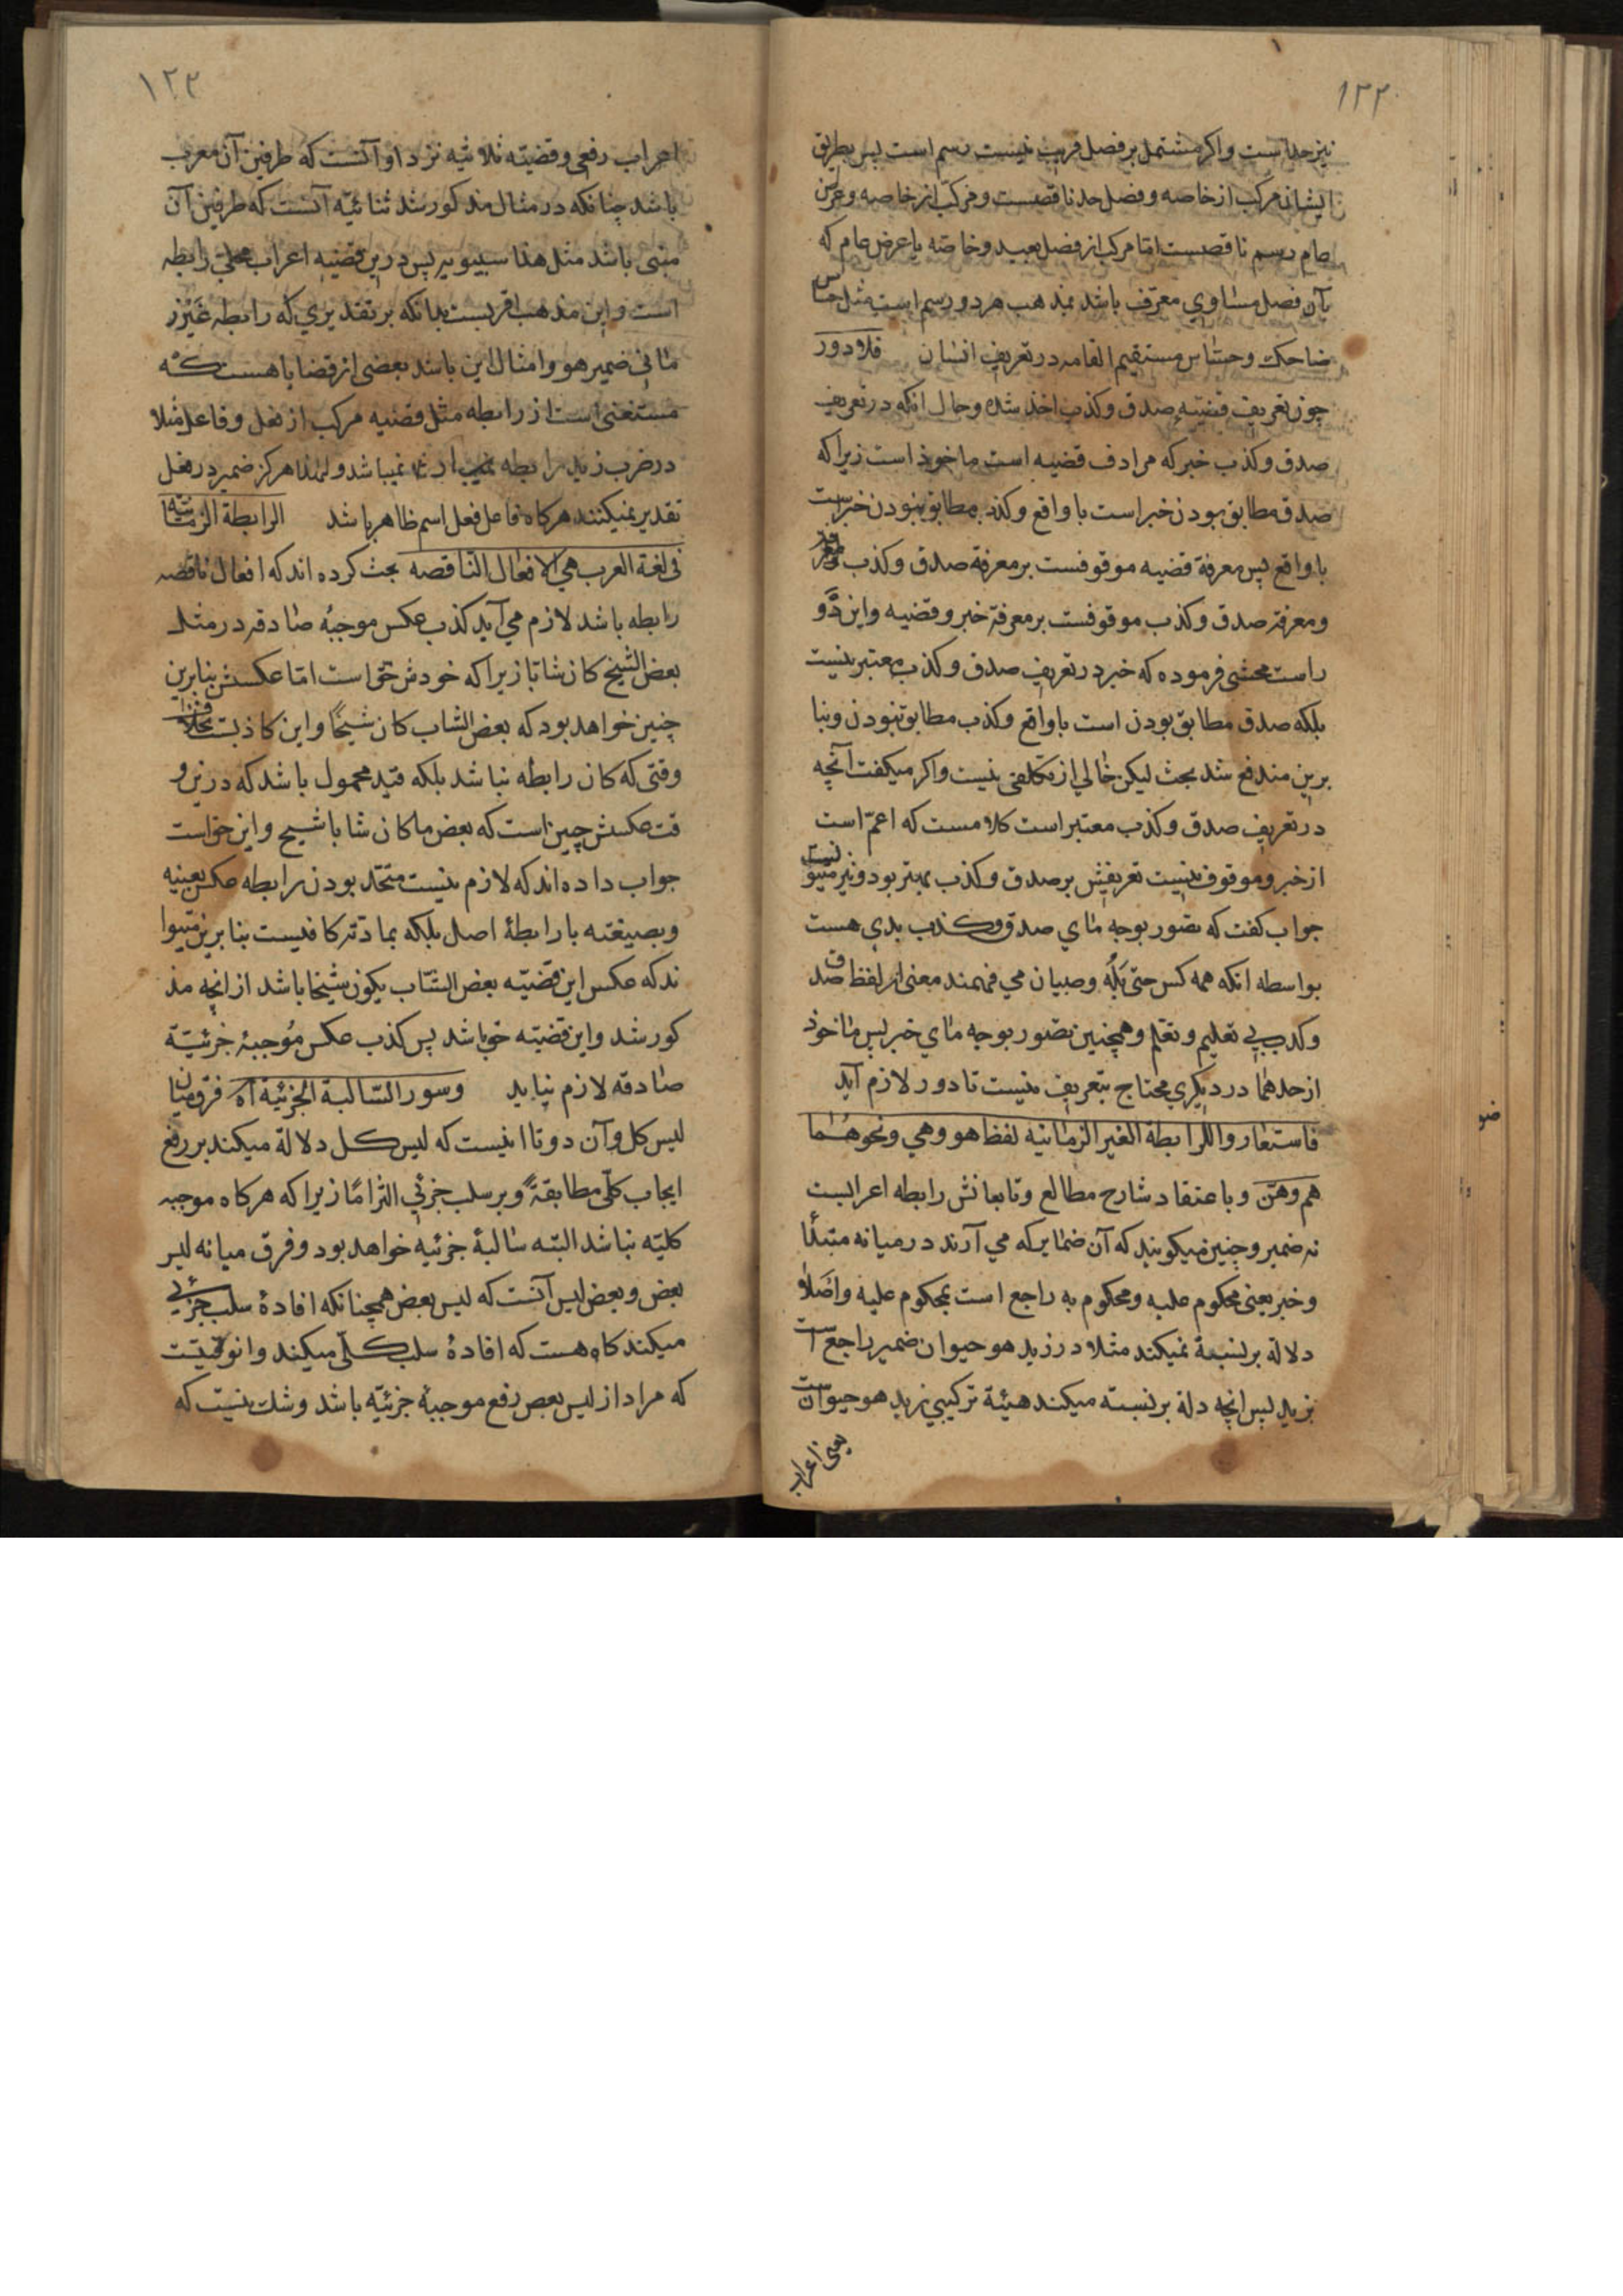 ۱۲۲
نیز حد است و اکر مشتمل بر فصل قریب نیست رسم است پس بطریق
ایشان مرکب از خاصه و فصل حد ناقصست و مرکب از خاصه و عرض
عام رسم ناقصست اما مرکب از فصل بعید و خاصه یا عرض عام که
بآن فصل مساوي معرّف باشد بمذهب هر دو رسم است مثل حساس
ضاحک و حساس مستقیم القامه در تعریف انسان فلا دور
چون تعریف قضیه صدق و کذب اخذ شده و حال انکه در تعریف
صدق و کذب خبر که مرادف قضیه است ماخوذ است زیرا که
صدق مطابق بودن خبر است با واقع و کذب مطابق نبودن خبرست
با واقع پس معرفة قضیه موقوفست بر معرفة صدق و کذب
و معرفة صدق و کذب موقوفست بر معرفة خبر و قضیه و این دَو
راست محشي فرموده که خبر در تعریف صدق و کذب معتبر نیست
بلکه صدق مطابق بودن است با واقع و کذب مطابق نبودن و بنا
برین مندفع شد بحث لیکن خالي از تکلفی نیست و اکر میکفت آنچه
در تعریف صدق و کذب معتبر است کلامست که اعمّ است
از خبر و موقوف نیست تعریفش بر صدق و کذب بهتر بود و نیز میتوانست
جواب کفت که تصور بوجه ماي صدق و کذب بدیهي هست
بواسطه انکه همه کس حتی بُلُه و صبیان مي فهمند معنی از لفظ صدق
و کذب بي تعلیم و تعلم و همچنین تصور بوجه ماي خبر پس ماخوذ
از حدهما در دیکري محتاج بتعریف نیست تا دور لازم آید
فاستعاروا للرابطة الغیر الزمانیه لفظ هو و هي و نحوهُما
هم و هنّ و باعتقاد شارح مطالع و تابعانش رابطه اعرابست
نه ضمیر و چنین میکویند که آن ضمایر که مي آرند در میانه مبتدأ
و خبر یعنی محکوم علیه و محکوم به راجع است بمحکوم علیه و اصلا
دلالة بر نسبة نمیکند مثلا در زید هو حیوان ضمیر راجع است
بزید پس انچه دلة بر نسبته میکند هیئة ترکیبي زید هو حیوانست
یعنی اعراب
ضو
۱۲۳
اعراب رفعي و قضیّه ثلاثیه نزد او آنست که طرفین آن معرب
باشد چنانکه در مثال مذکور شد ثنائیّه آنست که طرفین آن
مبنی باشد مثل هذا سیبویه پس درین قضیه اعراب محلي رابطه
است و این مذهب اقربست بدانکه بر تقدیري که رابطه غَیْر ز
ماني ضمیر هو و امثال این باشد بعضی از قضایا هست که
مستغنی است از رابطه مثل قضیه مرکب از فعل و فاعل مثلا
در ضرب زید رابطه نمیباشد و لهذا هرکز ضمیر در فعل
تقدیر نمیکنند هرکاه فاعل فعل اسم ظاهر باشد الرابطة الزمانیّه
في لغة العرب هي الافعال الناقصه بحث کرده اند که افعال ناقصه
رابطه باشد لازم مي آید کذب عکس موجبهٔ صادقه در مثل
بعض الشیخ کان شابا زیرا که خودش حق است اما عکسش بنابرین
چنین خواهد بود که بعض الشاب کان شیخًا و این کاذبست بخلاف
وقتی که کان رابطه نباشد بلکه قید محمول باشد که درین و
قت عکسش چنین است که بعض ما کان شابا شیخ و این حق است
جواب داده اند که لازم نیست متحد بودن رابطه عکس بعینه
و بصیغته با رابطهٔ اصل بلکه بمادّته کافیست بنابرین میتوا
ند که عکس این قضیّه بعض الشّاب یکون شیخا باشد از انچه مذ
کور شد و این قضیّه حق باشد پس کذب عکس مُوجبهٔ جزئیّة
صادقه لازم نیاید و سور السّالبة الجزئیّة آه فرق میان
لیس کل و آن دوتا اینست که لیس کل دلالة میکند بر رفع
ایجاب کلّي مطابقةً و بر سلب جزئي التزامًا زیرا که هرکاه موجبه
کلیّه نباشد البته سالبهٔ جزئیه خواهد بود و فرق میانه لیس
بعض و بعض لیس آنست که لیس بعض همچنانکه افادهٔ سلب جزئي
میکند کاه هست که افادهٔ سلب کلّي میکند و ان وقتیست
که مراد از لیس بعض رفع موجبهٔ جزئیّه باشد و شک نیست که